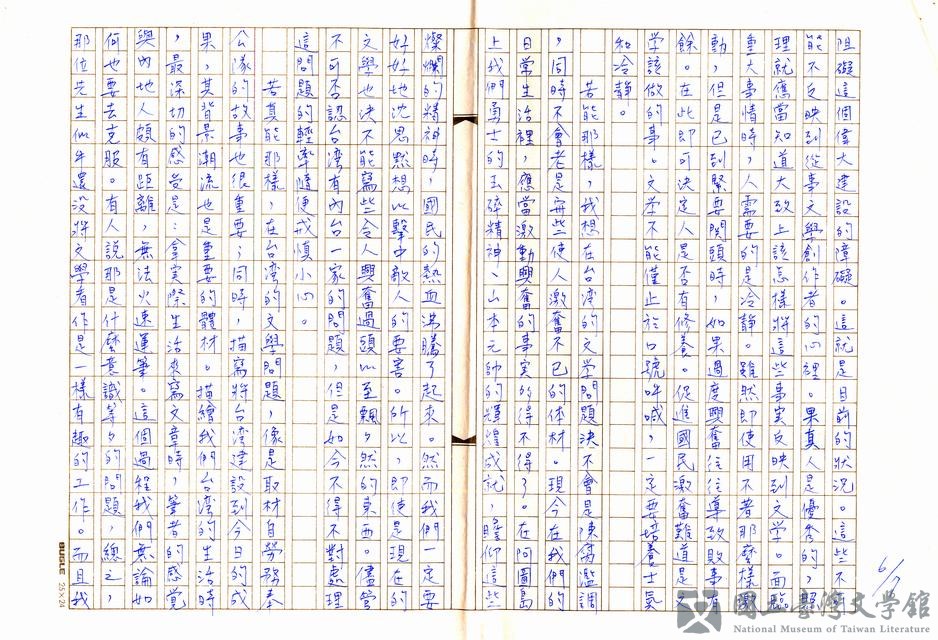 阻礙這個偉大建設的障礙。這就是目前的狀況。這些不可
能不反映到從事文學創作者的心裡。果真人是優秀的，
理就應當知道大致上該怎樣將這些事實反映到文學。面臨
重大事情時，人需要的是冷靜。雖然即使用不著那麼樣
動，但是已到緊要関頭時，如果過度興奮往往導致敗事有
餘。在此即可決定人是否有修養。促進國民激奮難道是文
學該做的事。文学不能僅止於口號吶喊，一定要培養士氣
和冷靜。
苦能那樣，我想在台湾的文学問題決不會是陳腐濫調
，同時不會老是弄些使人激奮不已的体材。現今在我們的
日常生活裡，應當激動興奮的事实多得不得了。在阿圖島
上我們勇士的玉碎精神、山本元帥的輝煌成就，瞻仰這些
燦爛的精神時，國民的熱血沸騰了起來。然而我們一定要
好好地沈思默想以擊中敵人的要害。所以，即使是現在的
文學也決不能寫些令人興奮過頭以至飄々然的東西。儘管
不可否認台湾有內台一家的問題，但是如今不得不對處理
這問題的輕率隨便戒慎小心。
苦真能那樣，在台湾的文學問題，像是取材自勞務奉
公隊的故事也很重要；同時，描寫將台湾建設到今日的成
果，其背景潮流也是重要的體材。描繪我們台湾的生活時
，最深切的感受是：拿实際生活來寫文章時，筆者的感覚
與內地人頗有距離，無法火速運筆。這個過程我們無論如
何也要去克服。有人說那是什麼意識等々的問題，總之，
那位先生似乎還沒將文學者作是一樣有趣的工作。而且我
6/7
BUGLE 25×24
國立臺灣文學館
National Museum of Taiwan Literature